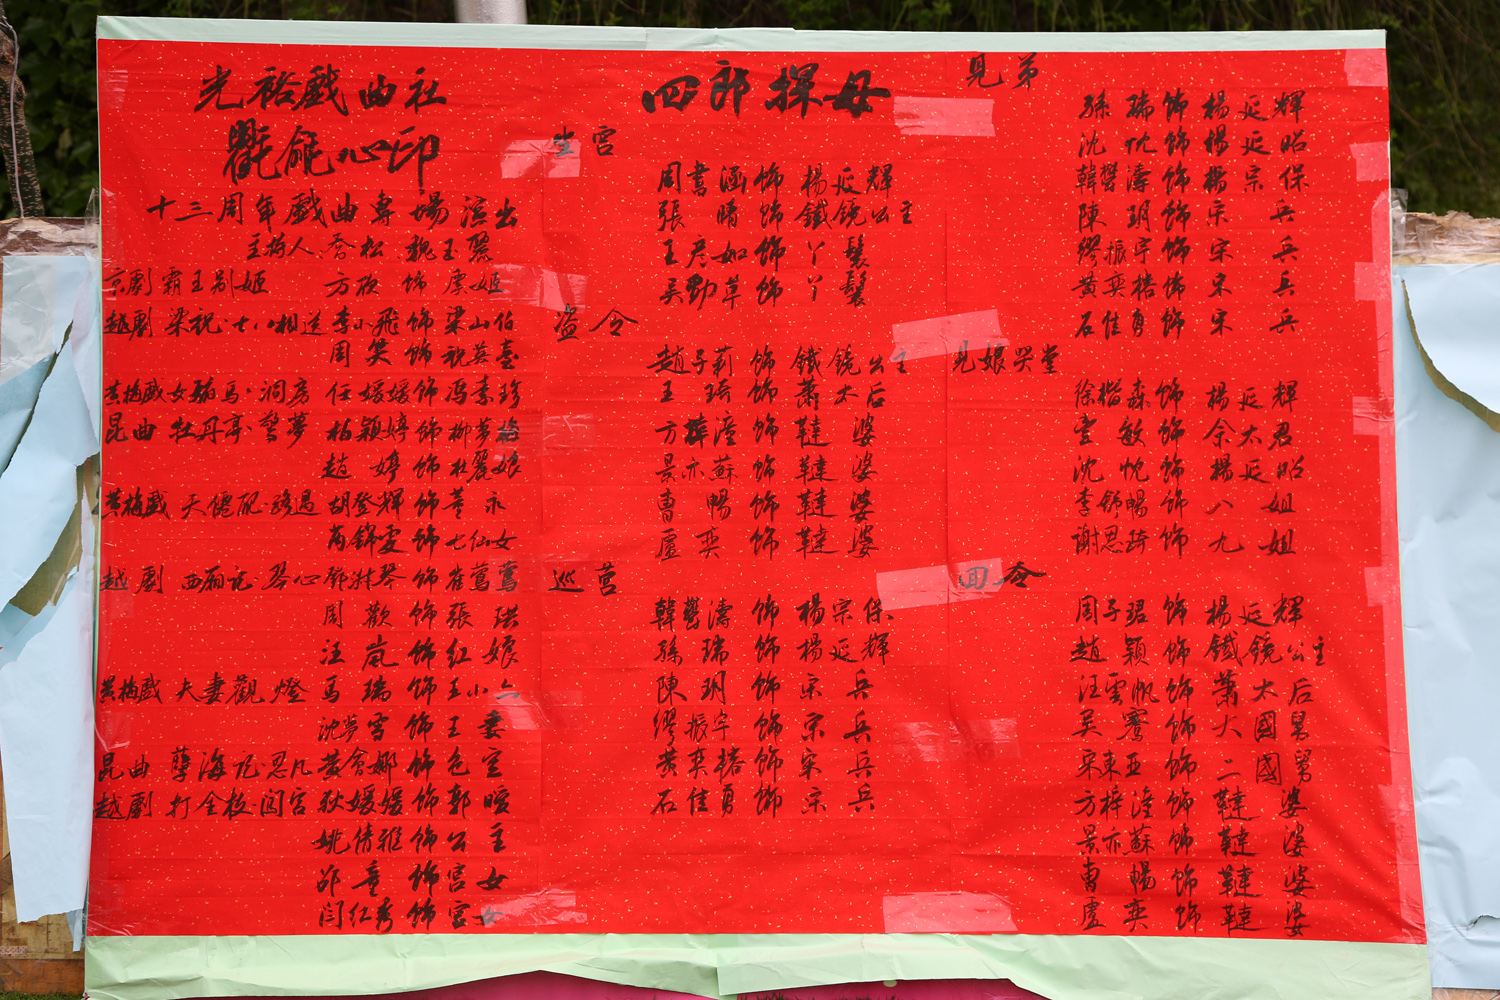 光裕戲曲社
氍毹心印
十三周年戲曲專場演出
主持人 喬松 魏玉麗
京劇 霸王别姬 方欣 飾 虞姬
越劇 梁祝·十八相送 李小飛 飾 梁山伯
周笑 飾 祝英臺
黃梅戲 女駙馬·洞房 任媛媛 飾 馮素珍
昆曲 牡丹亭·驚夢 柏穎婷 飾 柳夢梅
趙婷 飾 杜麗娘
黃梅戲 天僊配·路遇 胡登輝 飾 董永
芮錦雯 飾 七仙女
越劇 西廂記·琴心 飾 崔鶯鶯
周歡 飾 張珙
汪嵐 飾 紅娘
黃梅戲 夫妻觀燈 馬瑞 飾 王小六
沈夢雪 飾 王妻
昆曲 孽海記·思凡 黃會娜 飾 色空
越劇 打金枝·闖宮 狄媛媛 飾 郭曖
姚倩雅 飾 公主
邵童 飾 宮女
閆红秀 飾 宮女
四郎探母
坐宮
周書涵 飾 楊延輝
張晴 飾 鐵鏡公主
王彦如 飾 丫鬟
吴勁草 飾 丫鬟
盗令
趙子莉 飾 鐵鏡公主
王琦 飾 蕭太后
方梓瀅 飾 韃婆
景亦蘇 飾 韃婆
曹暢 飾 韃婆
盧奕 飾 韃婆
巡營
韓藝濤 飾 楊宗保
孫瑞 飾 楊延輝
陳玥 飾 宋兵
繆振宇 飾 宋兵
黃奕椿 飾 宋兵
石佳勇 飾 宋兵
見弟
孫瑞 飾 楊延輝
沈忱 飾 楊延昭
韓藝濤 飾 楊宗保
陳玥 飾 宋兵
繆振宇 飾 宋兵
黃奕椿 飾 宋兵
石佳勇 飾 宋兵
見娘哭堂
徐楷森 飾 楊延輝
雲敏 飾 佘太君
沈忱 飾 楊延昭
李舒暢 飾 八姐
謝思琦 飾 九姐
回令
周子珺 飾 楊延輝
趙穎 飾 鐵鏡公主
汪雲帆 飾 蕭太后
吴騫 飾 大國舅
宋東亚 飾 二國舅
方梓瀅 飾 韃婆
景亦蘇 飾 韃婆
曹暢 飾 韃婆
盧奕 飾 韃婆